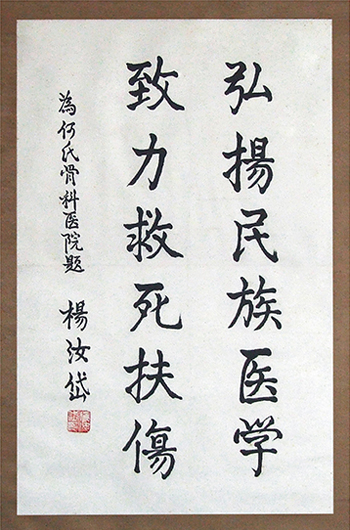 弘揚民族医学
致力救死扶傷
為何氏骨科医院题
楊汝岱